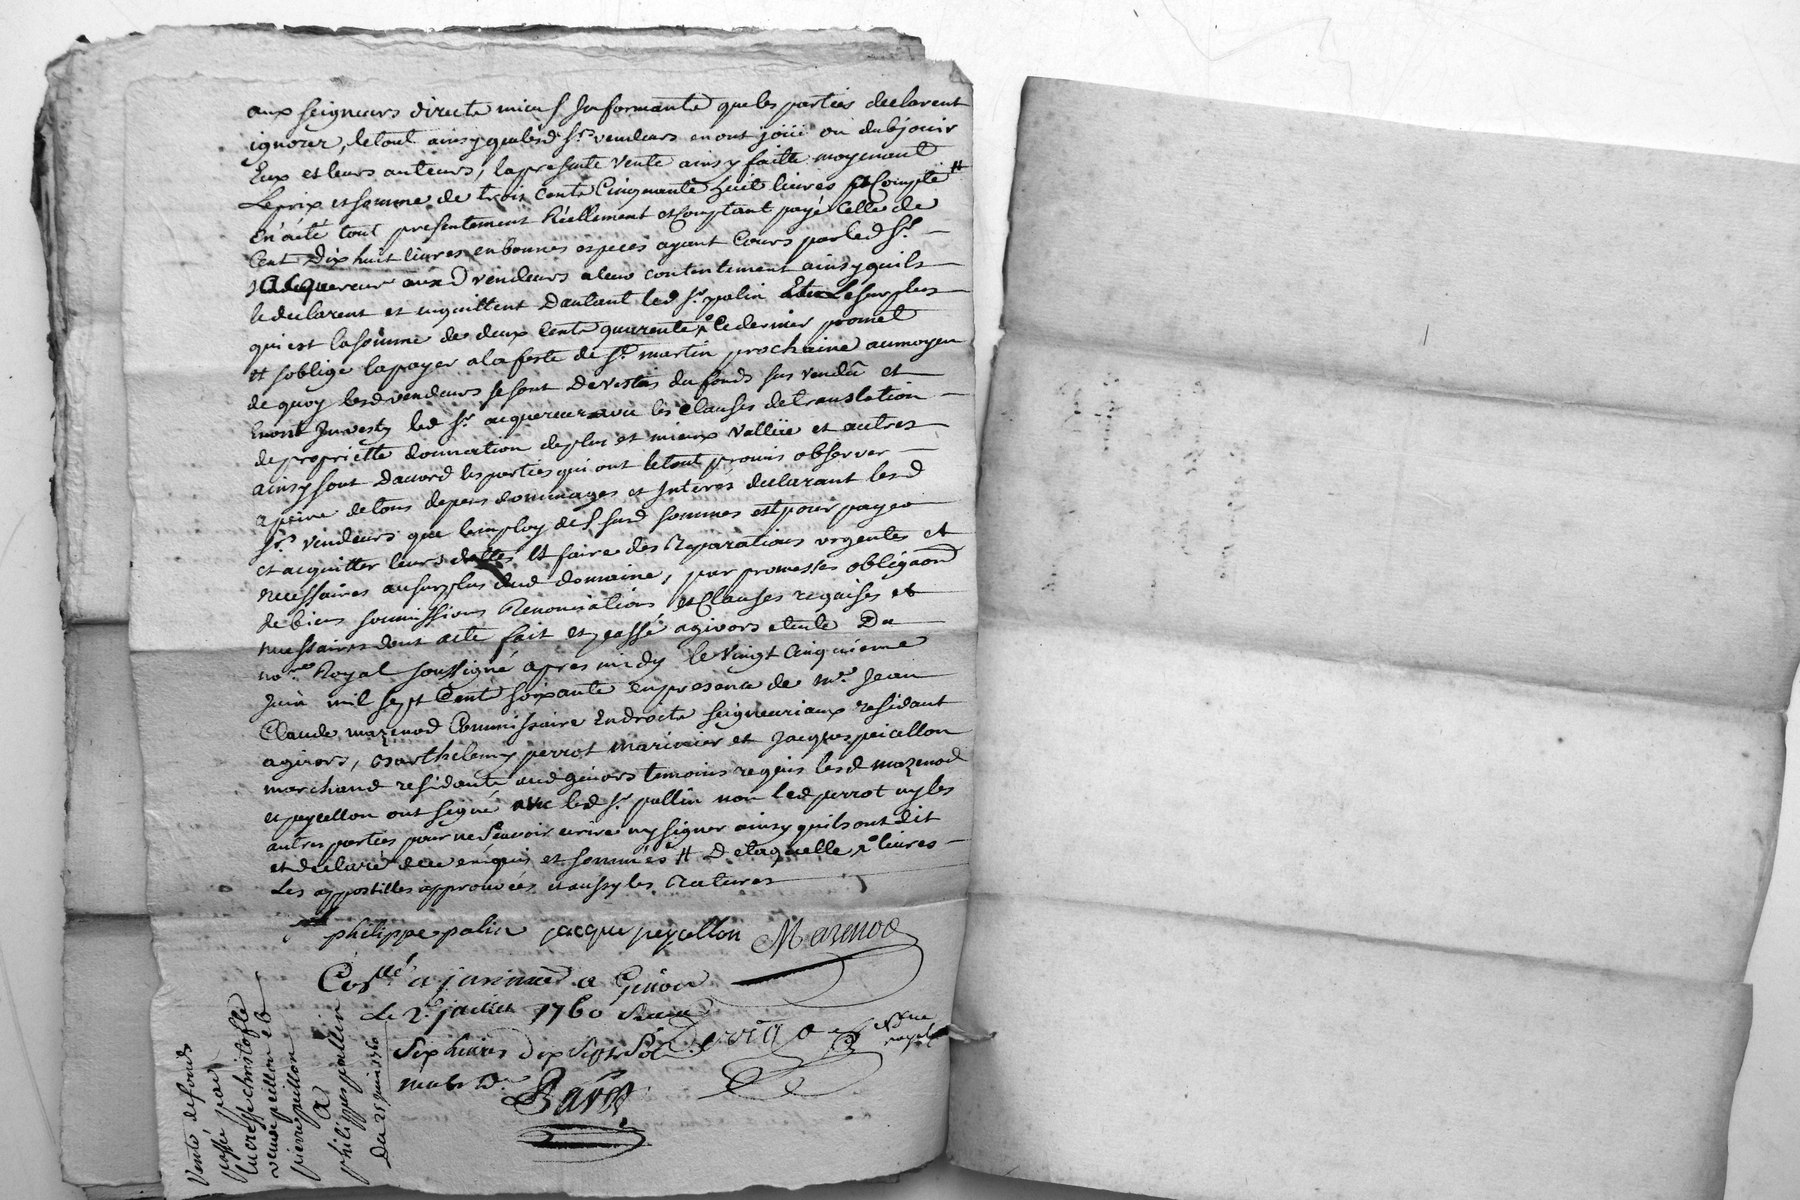 aux seigneurs directe mieux Informante que les parties declarent
ignorer, le tout ainsy que lesd srs vendeurs en ont joüi ou dub jouir
Eux et leurs auteurs, la presente vente ainsy faitte moyenant
Le prix et somme de trois cents Cinquante huit livres a Compte #
en a été tout presentement Réellement et Comptant payé Celle de
Cent Dix huit livres en bonnes especes ayant Cours par led sr
acquereur auxd vendeurs a leur contentement ainsy quils
le declarent et en quittent D'autant led sr palin Et Le surplus
qui est la somme de deux Cents quarente # Ce dernier promet
et soblige la payer a la feste de St martin prochaine au moyen
de quoy lesd vendeurs se sont Devestus du fonds sus vendû et
En ont Investy led sr acquereur avec les Clauses de translation
de proprietté donnation de plus et mieux Vallüe et autres
ainsy sont D'accord les parties qui ont le tout promis observer
a peine de tous depens dommages et Interés declarant lesd
srs vendeurs que l'employ desd susd sommes est pour payer
et acquitter leurs dettes Et faire des Reparations urgentes et
necessaires au surplus dud domaine, par promesses obligaons
de biens soumissions Renonciations et Clauses requises et
necessaires dont acte fait et passé a givors etude Du
nore Royal soussigné apres midy le Vingt Cinquieme
Juin mil sept Cent soixante en presence de me Jean
Claude mazenod Commissaire En droits seigneuriaux residant
a givors, Barthelemy perrot marinier et Jacques peicellon
marchand residants aud givors temoins requis lesd mazenod
et peycellon ont signé avec led sr pallin non led perrot ny les
autres parties pour ne sçavoir ecrire ny signer ainsy quils ont dit
et declaré de ce enquis et sommés # De laquelle # livres
Les appostilles approuvées et aussy les Ratures
philippe palin jacque peycellon Mazenod
Coll
Le 2e juillet 1760
six livres dix sept sols
royal
Vente de fonds
passée par
lucresse christofle
veuve peillon et
pierre peillon
A
philippe pallin
Du 25 juin 1760